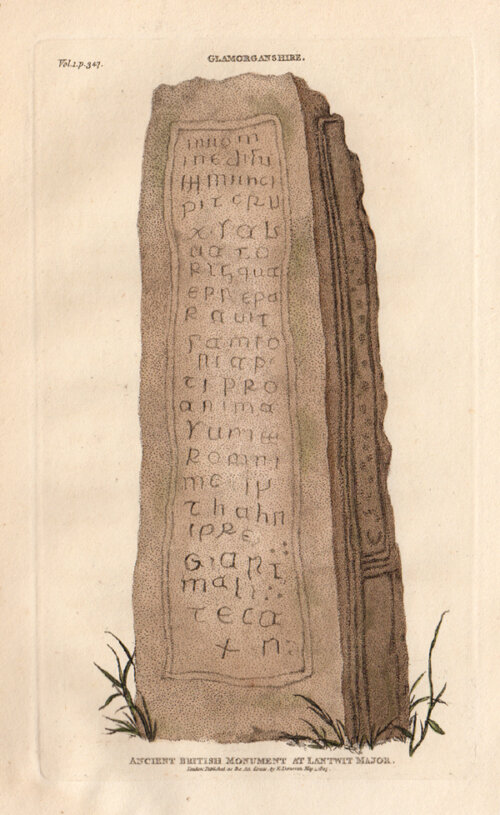 Vol.1.p.347.
GLAMORGANSHIRE.
innom
inedisu
inci
pitcru
xsal
aato
risqua
eprepa
ravit
samso
niap
tipro
anima
thahn
ipre
mali
teca
+ n:
ANCIENT BRITISH MONUMENT AT LANTWIT MAJOR.
London Published as the Act directs, by E. Donovan May 1, 1805.